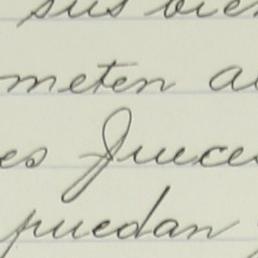 sus bie
meten a
es Juece
puedan